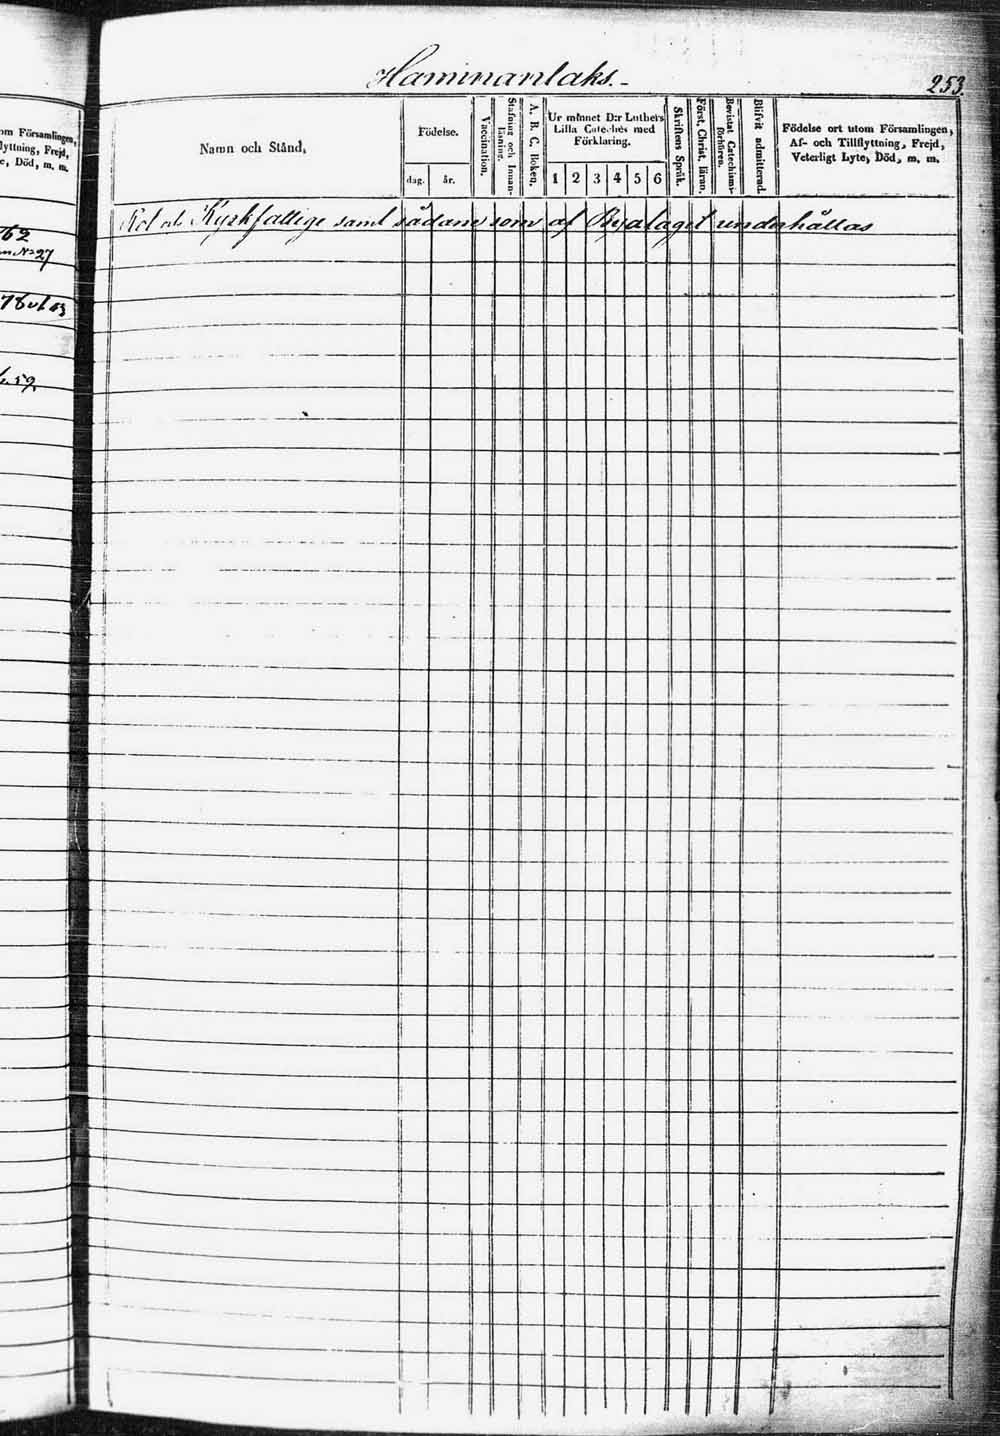 Haminanlaks.
253.
om Församlingen,
lyttning, Frejd,
e, Död, m. m.
62
No 27
59
Namn och Stånd,
Födelse.
dag.
år.
Vaccination.
Stafning och Innan-
läsning.
A. B. C. Boken.
Ur minnet D:r Luthers
Lilla Cateches med
Förklaring.
1 2 3 4 5 6
Skriftens Språk.
Först. Christ. läran.
Bevistat Catechismi-
förhören.
Blifvit admitterad.
Födelse ort utom Församlingen,
Af- och Tillflyttning, Frejd,
Veterligt Lyte, Död, m. m.
Rot och Kyrkfattige samt sådane som af Byalaget underhållas